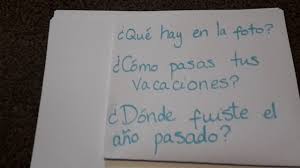 ¿Qué hay en la foto?
¿Cómo pasas tus
vacaciones?
¿Dónde fuiste el
año pasado?